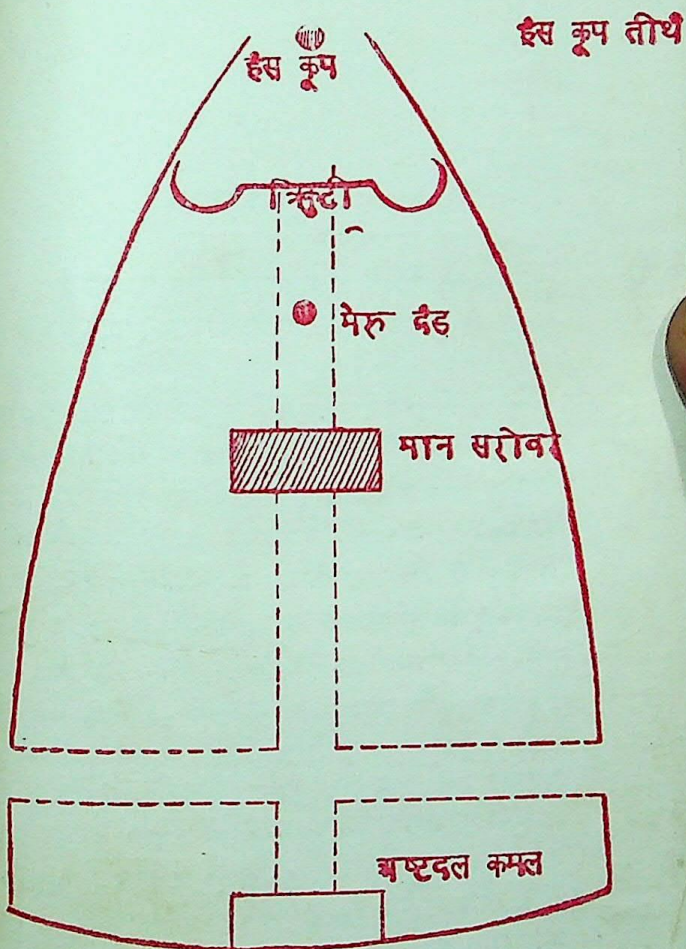 हंस कूप तीर्थ
हंस कूप
त्रिकुटी
मेरु दंड
मान सरोवर
अष्टदल कमल